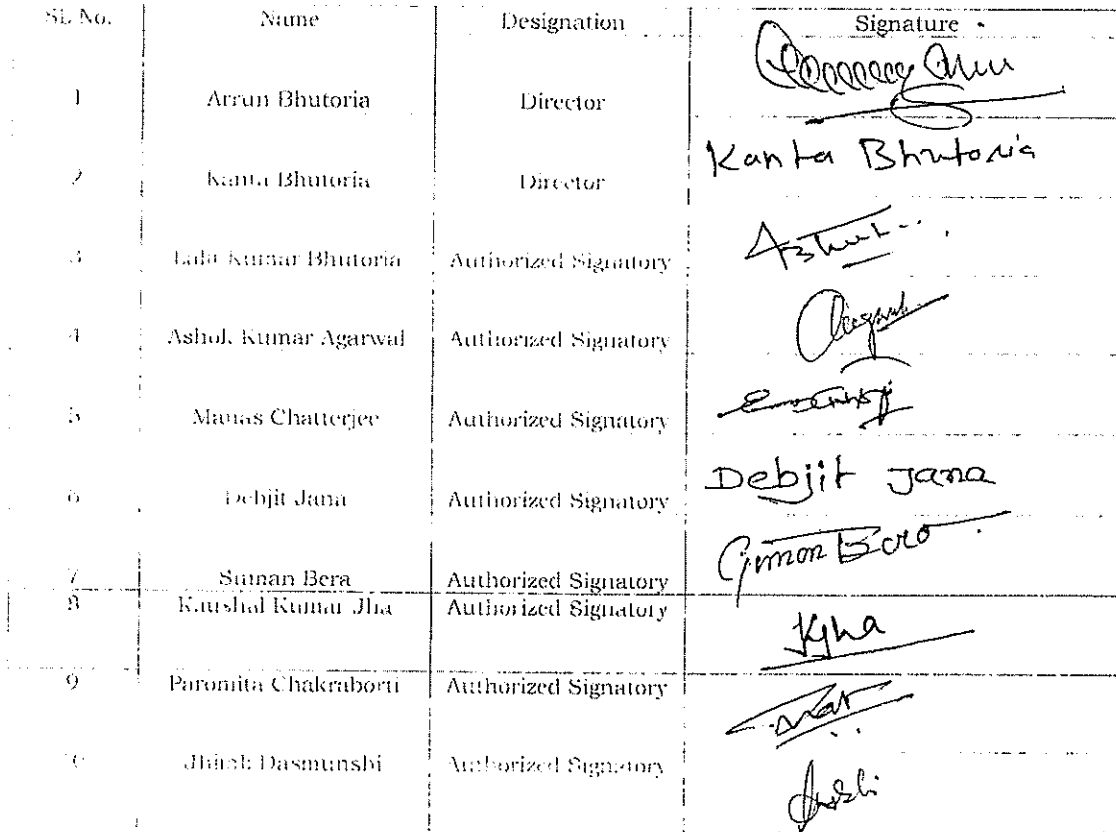 Sl. No. Name Designation Signature
1 Arrun Bhutoria Director
2 Kanta Bhutoria Director Kanta Bhutoria
3 Lala Kumar Bhutoria Authorized Signatory
4 Ashok Kumar Agarwal Authorized Signatory
5 Manas Chatterjee Authorized Signatory
6 Debjit Jana Authorized Signatory Debjit Jana
7 Suman Bera Authorized Signatory
8 Kaushal Kumar Jha Authorized Signatory KJha
9 Paromita Chakraborti Authorized Signatory
Dasmunshi Authorized Signatory